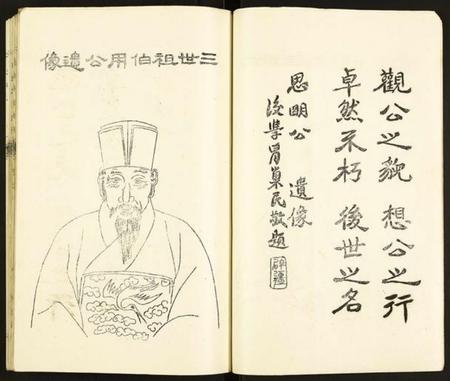 觀公之貌 想公之行
卓然不朽 後世之名
思明公 遺像
後學胥巢民敬題
三世祖伯用公遺像